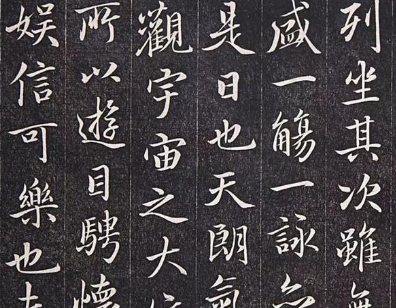 列坐其次雖無
盛一觴一詠亦
是日也天朗氣
觀宇宙之大俯
所以遊目騁懷
娱信可樂也夫